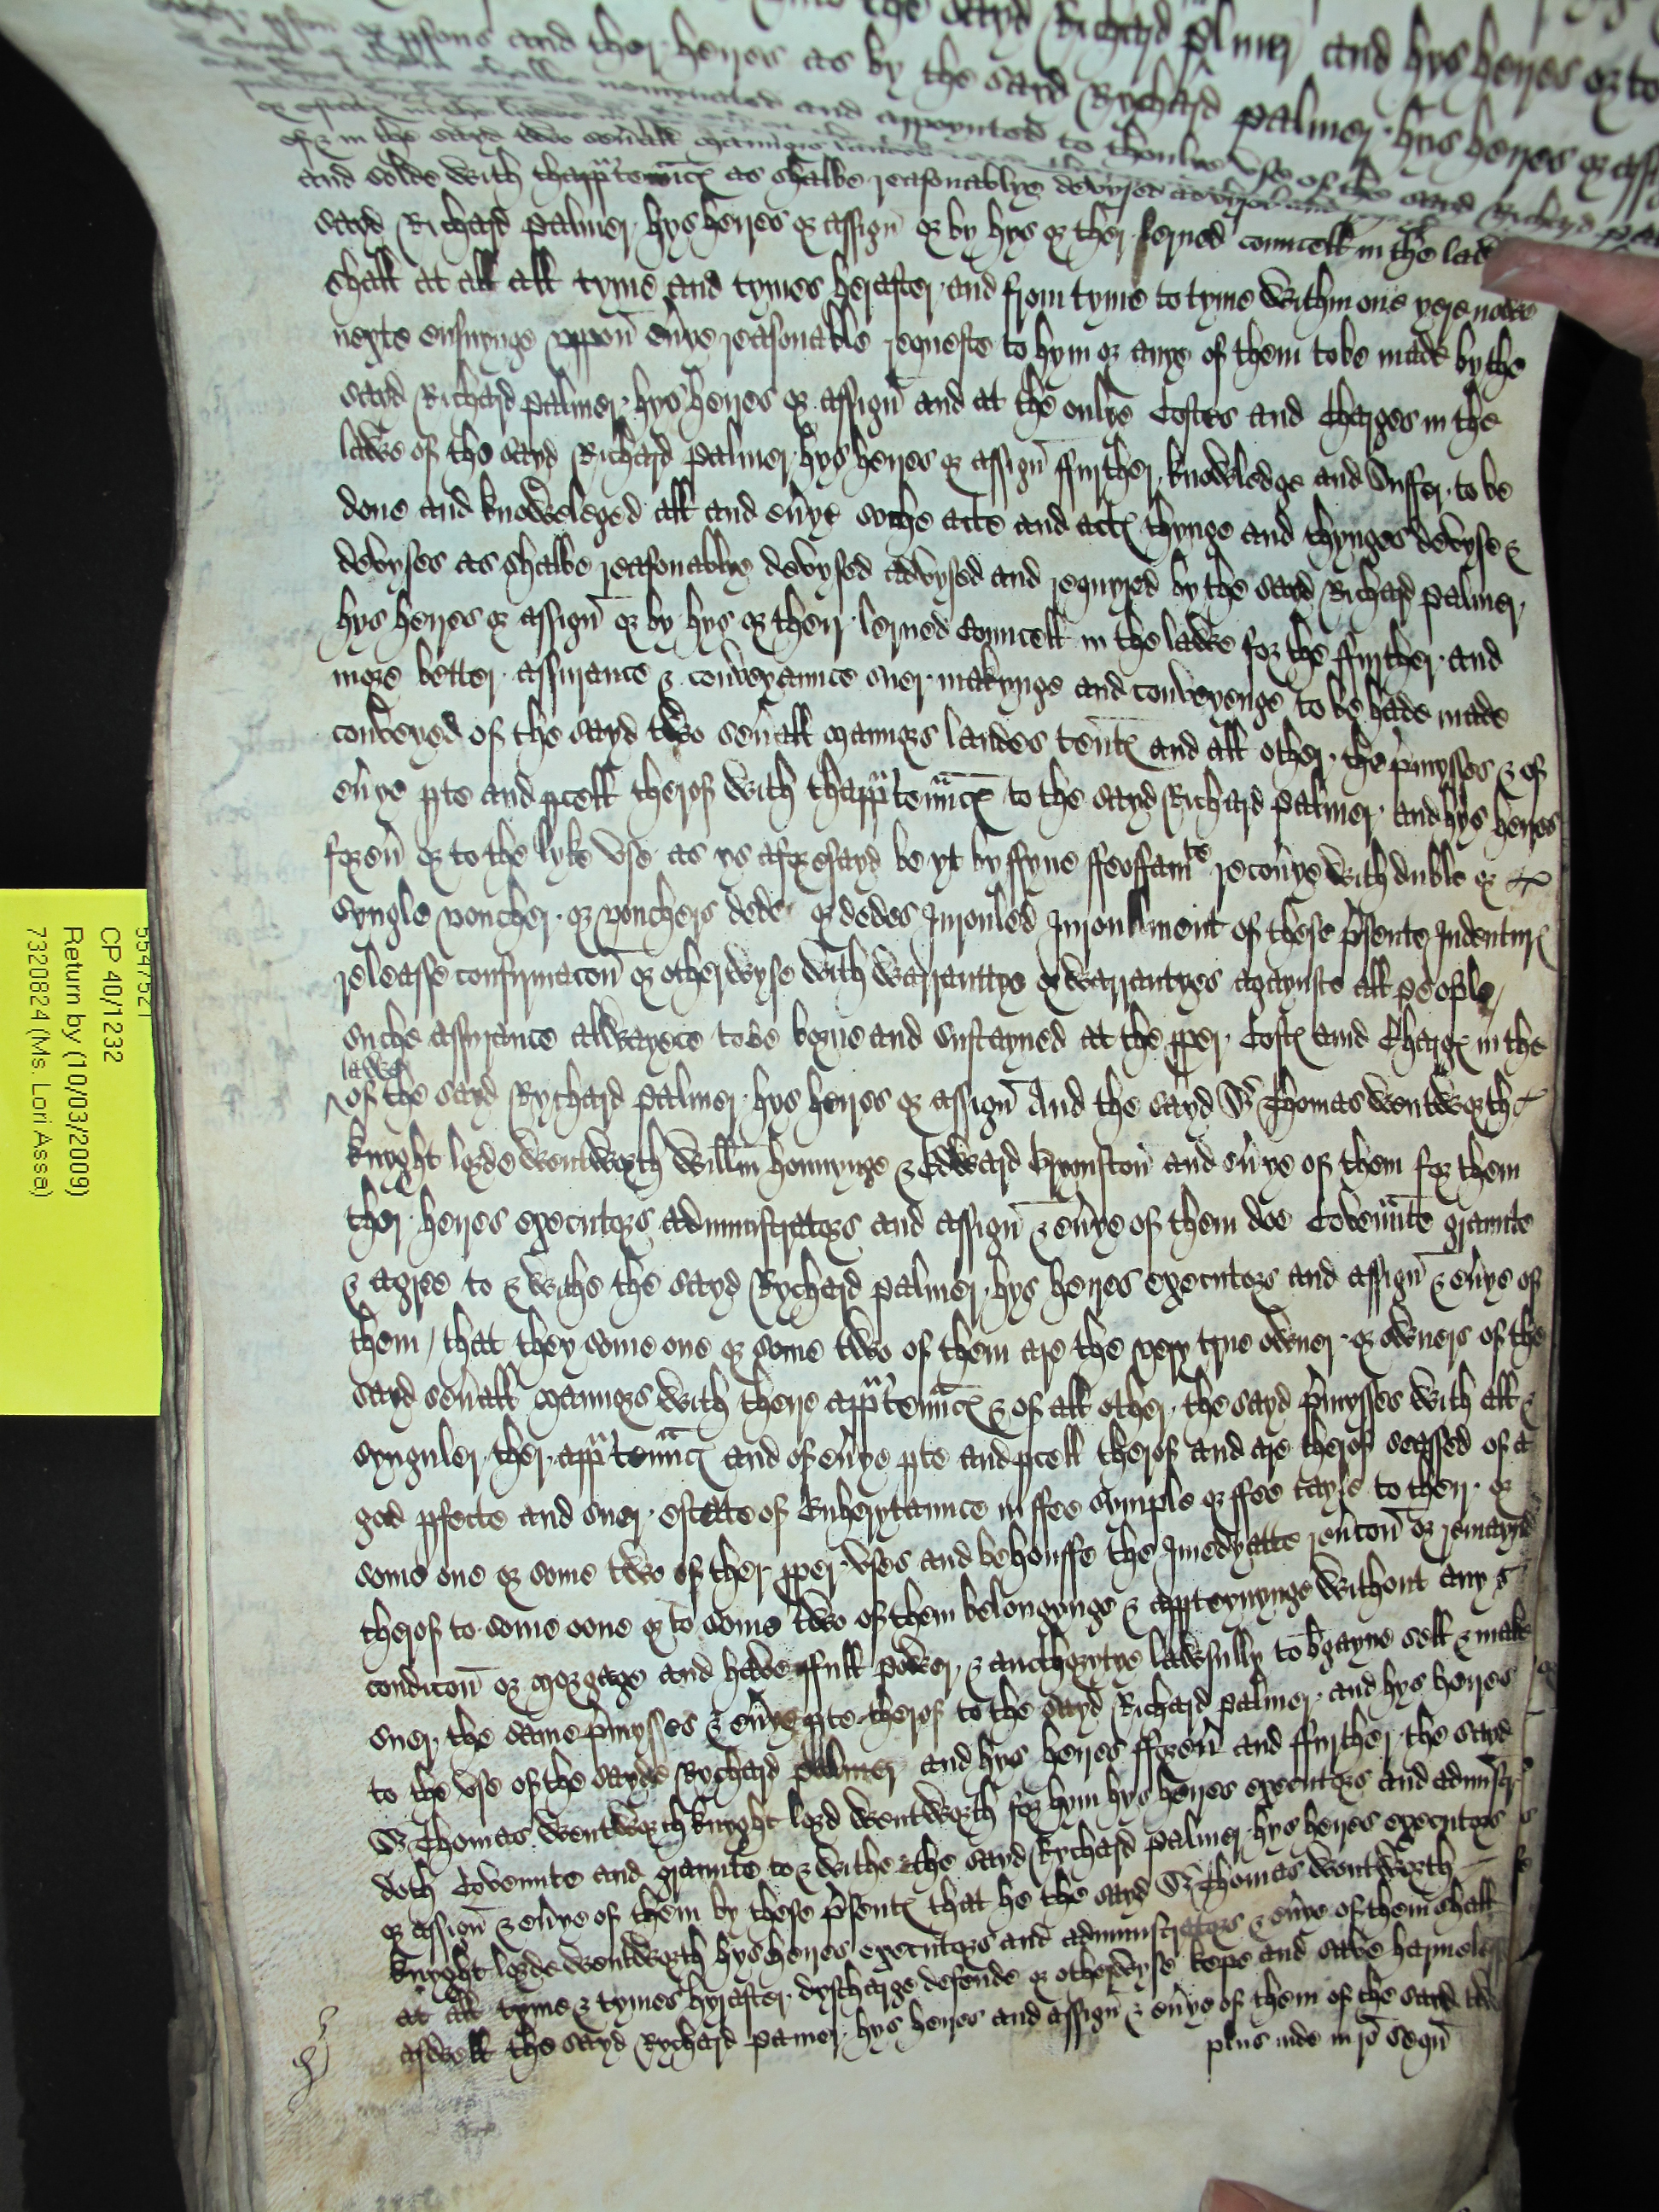 the sayd Richard Palmer and hys heyres or to
pson or psons and ther heyres as by the sayd Rychard Palmer hys heyres or assi
shalbe nomynated and appoynted to thonlye use of the sayd Richard
of & in the sayd two sevall mannors landes
and solde with thapptennces as shalbe reasonablye devysed advysed and
sayd Richard Palmer hys heyres or assign or by hys or ther lerned councell in the law
shall at all all tyme and tymes herafter and from tyme to tyme within one yere nowe
nexte ensuynge uppon evye reasonable requeste to hym or anye of them tobe made by the
sayd Richard Palmer hys heyres or assign and at the onlye Costes and Charges in the
lawe of the sayd Richard Palmer hys heyres or assign ffurther knowledge and Suffer to be
done and knoweleged all and evye suche acte and actes thynge and thynges devyse &
devyses as shalbe reasonablye devysed advysed and requyred by the sayd Richard Palmer
hys heyres or assign or by hys or theyr lerned Councell in the lawe for the ffurther and
more better assurance & conveyaunce suer makynge and conveyenge to be hade made
conveyed of the sayd two sevall mannors landes tentes and all other the pmysses & of
evye pte and pcell therof with thapptennces to the sayd Richard Palmer and hys heyres
forev or to the lyke use as ys aforesayd be yt by ffyne ffeoffamte recovye with duble or
Syngle voucher or vouchers dede or dedes Inrouled Inroulment of these psente Indentures
releasse confirmacon or otherwyse with warrauntye or warrantyes agaynste all people
suche assurance alwayece tobe borne and sustayned at the pper Costes and Charges in the
lawe
of the sayd Rychard Palmer hys heyres or assign And the sayd Sr Thomas wentworth
knyght lorde wentworth Willm honnynge & Edward Grymston and evye of them for them
ther heyres executors admynistrators and assign & evye of them doe Covennte graunte
& agree to & withe the sayd Rychard Palmer hys heyres executors and assign & evye of
them / that they some one or some two of them are the very true owner or owners of the
sayd sevall mannors with there apptennces & of all other the sayd pmysses with all &
synguler ther apptennces and of evye pte and pcell therof and are therof seassed of a
god pfecte and suer estate of Enherytaunce in ffee symple or ffee tayle to theyr or
some one or some two of ther pper uses and behouffe the Imedyatte revcon or remaynd
therof to some oone or to some two of them belongynge & appteynynge without any
condicon or morgage and have ffull power & aucthorytye lawfully to bgayne sell & make
suer the same pmysses & evye pte therof to the sayd Richard Palmer and hys heyres
to the use of the sayde Rychard palmer and hys heyres fforev and ffurther the sayd
Sr Thomas wentworth knyght lord wentworth for hym hys heyres executors and admistr
doth Covennte and graunte to & withe the sayd Rychard Palmer hys heyres executors
or assign & evye of them by these psentes that he the sayd Sr Thomas wentworth
knyght lorde wentworth hys heyres executors and admynistrators & evye of them shall
at all tyme & tymes hyrafter dyscharge defende or otherwyse kepe and save harmeles
aswell the sayd Rychard pamer hys heyres and assign & evye of them of the sayd two
plus inde in ro sequ
5547521
CP 40/1232
Return by (10/03/2009)
7320824 (Ms. Lori Asse)